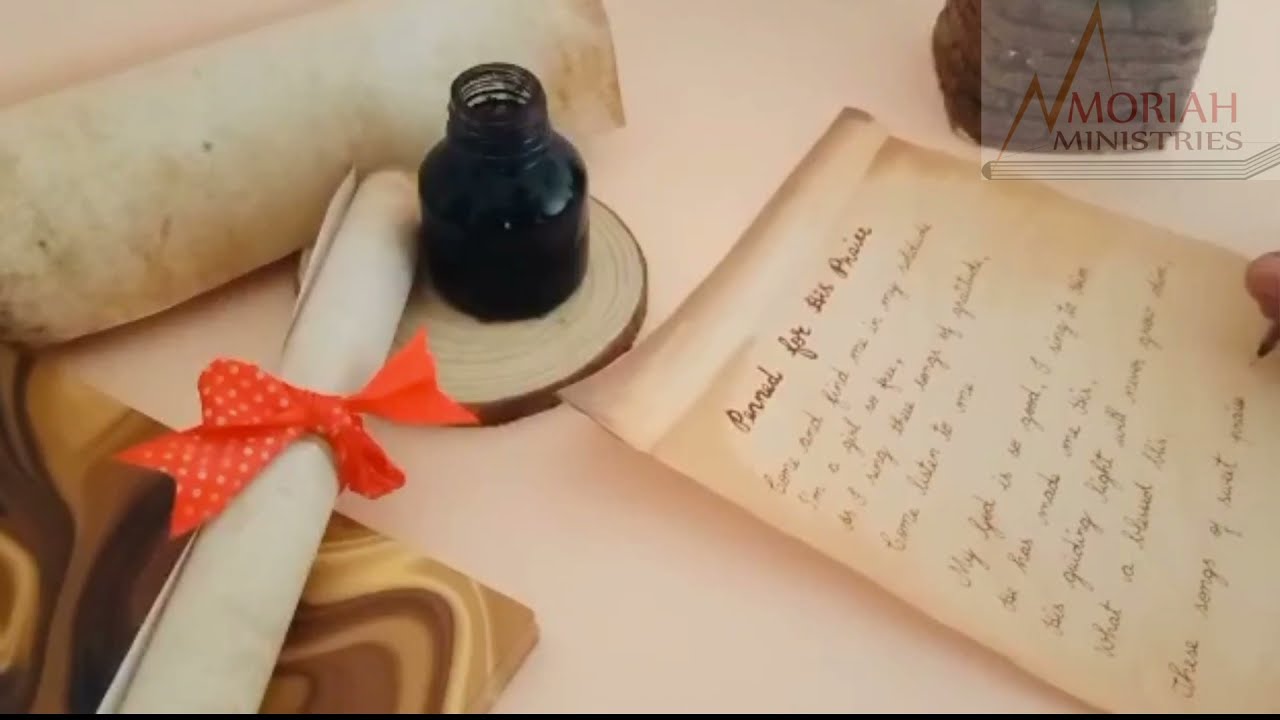 MORIAH
MINISTRIES
Penned for His Praise
Come and find me in my solitude
I'm a girl so free,
As I sing these songs of gratitude,
Come listen to me
My God is so good, I sing to Him
He has made me His,
His guiding light will never grow dim,
What a blessed bliss
These songs of sweet praise